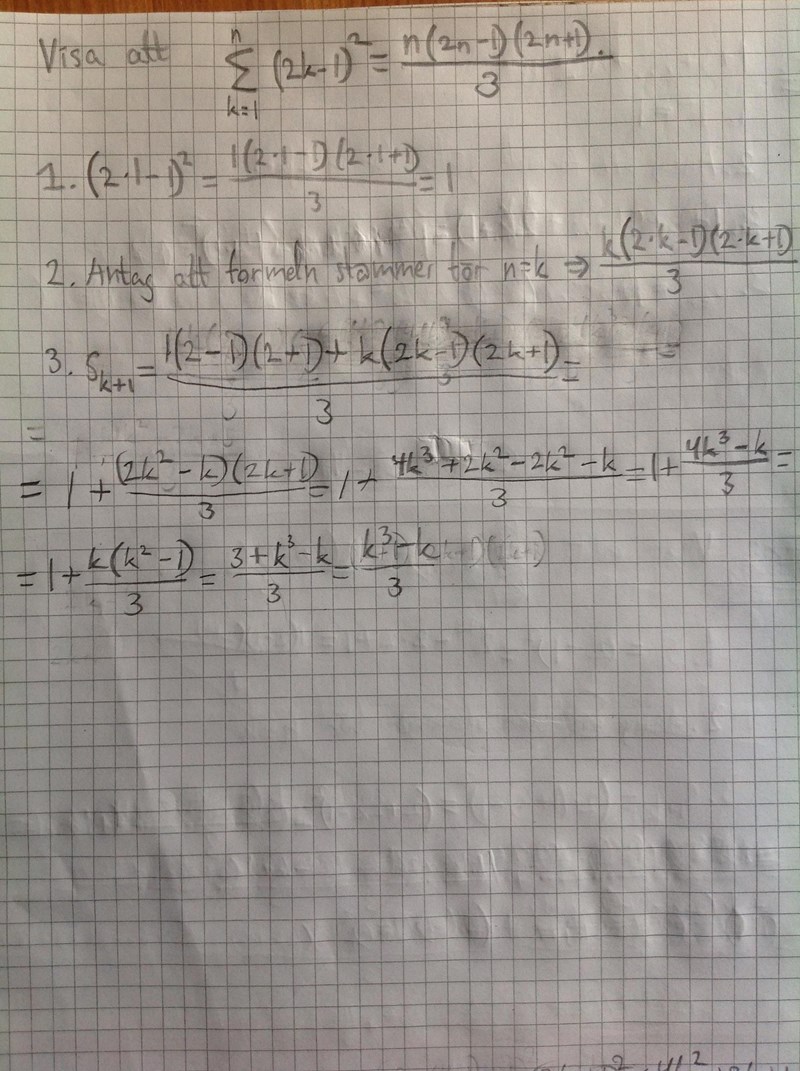 Visa att \sum_{k=1}^{n} (2k-1)^2 = \frac{n(2n-1)(2n+1)}{3}.
1. (2·1-1)^2 = \frac{1(2·1-1)(2·1+1)}{3} = 1
2. Antag att formeln stämmer för n=k ⇒ \frac{k(2·k-1)(2·k+1)}{3}
3. S_{k+1} = \frac{1(2-1)(2+1) + k(2k-1)(2k+1)}{3} = =
=
= 1 + \frac{(2k^2-k)(2k+1)}{3} = 1 + \frac{4k^3+2k^2-2k^2-k}{3} = 1 + \frac{4k^3-k}{3} =
= 1 + \frac{k(k^2-1)}{3} = \frac{3+k^3-k}{3} = \frac{k^3-k}{3}